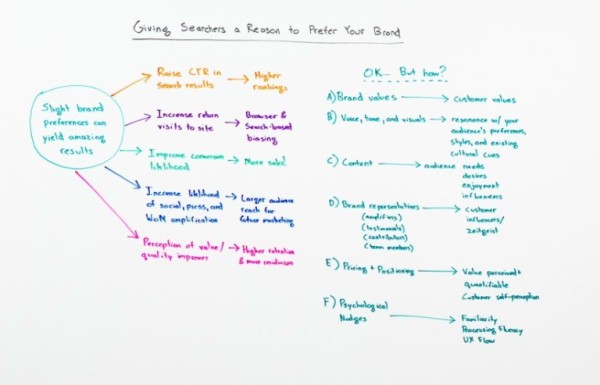 Giving Searchers a Reason to Prefer Your Brand
Slight brand
preferences can
yield amazing
results
Raise CTR in
search results
Higher
rankings
Increase return
visits to site
Browser &
Search-based
biasing
Improve conversion
likelihood
More sales!
Increase likelihood
of social, press, and
WoM amplification
Larger audience
reach for
future marketing
Perception of value/
quality improves
Higher retention
& more evangelism
OK... But how?
A) Brand values
customer values
B) Voice, tone, and visuals
resonance w/ your
audience's preferences,
styles, and existing
cultural cues
C) Content
audience needs
desires
enjoyment
influencers
D) Brand representatives
(amplifiers)
(testimonials)
(contributors)
(team members)
Customer
influencers/
zeitgeist
E) Pricing + Positioning
Value perceived +
quantifiable
Customer self-perception
F) Psychological
Nudges
Familiarity
Processing Fluency
UX Flow